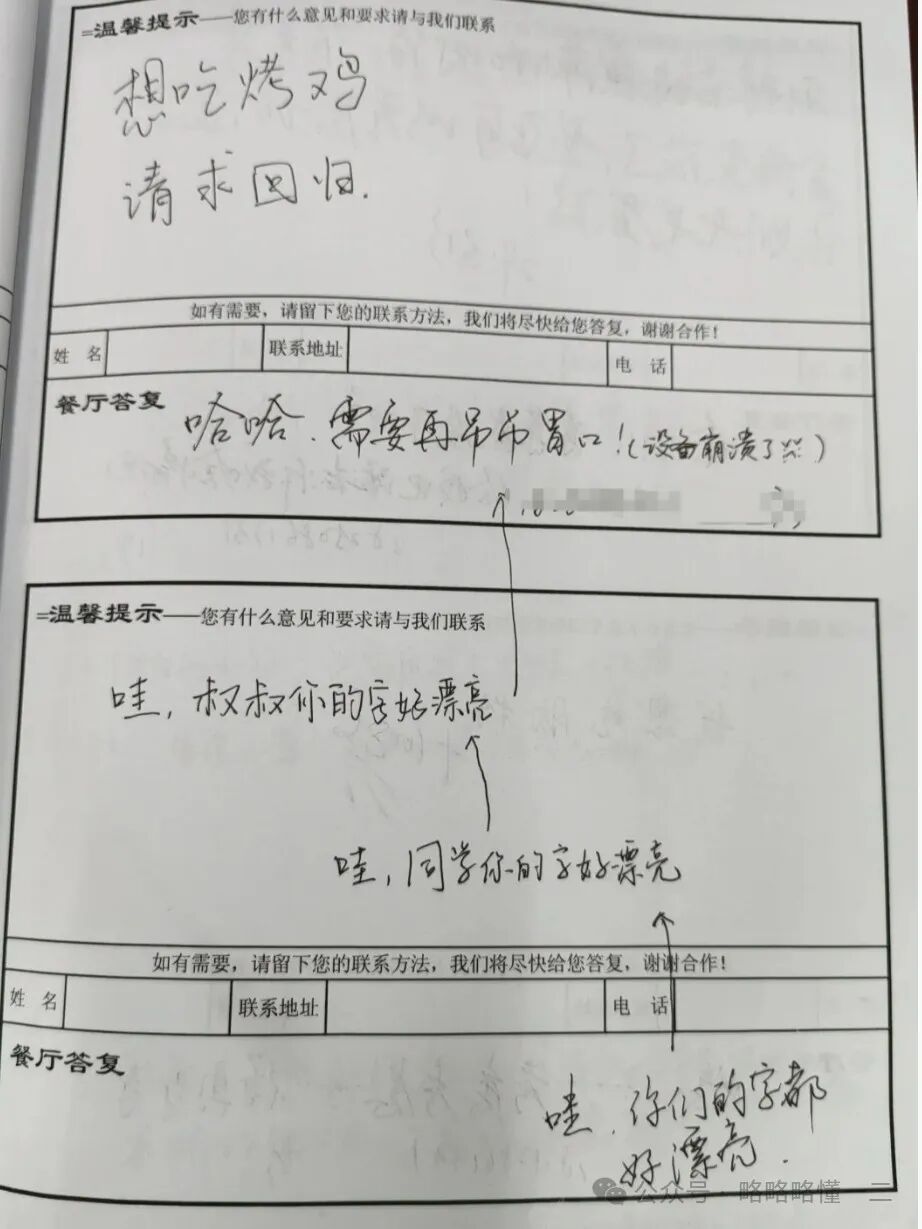 =温馨提示——您有什么意见和要求请与我们联系
想吃烤鸡
请求回归.
如有需要，请留下您的联系方法，我们将尽快给您答复，谢谢合作！
姓 名 联系地址 电 话
餐厅答复
哈哈.需要再吊吊胃口！(设备崩溃了)
=温馨提示——您有什么意见和要求请与我们联系
哇，叔叔你的字好漂亮
哇，同学你的字好漂亮
如有需要，请留下您的联系方法，我们将尽快给您答复，谢谢合作！
姓 名 联系地址 电 话
餐厅答复
哇.你们的字都
好漂亮.
公众号·略略略懂一二